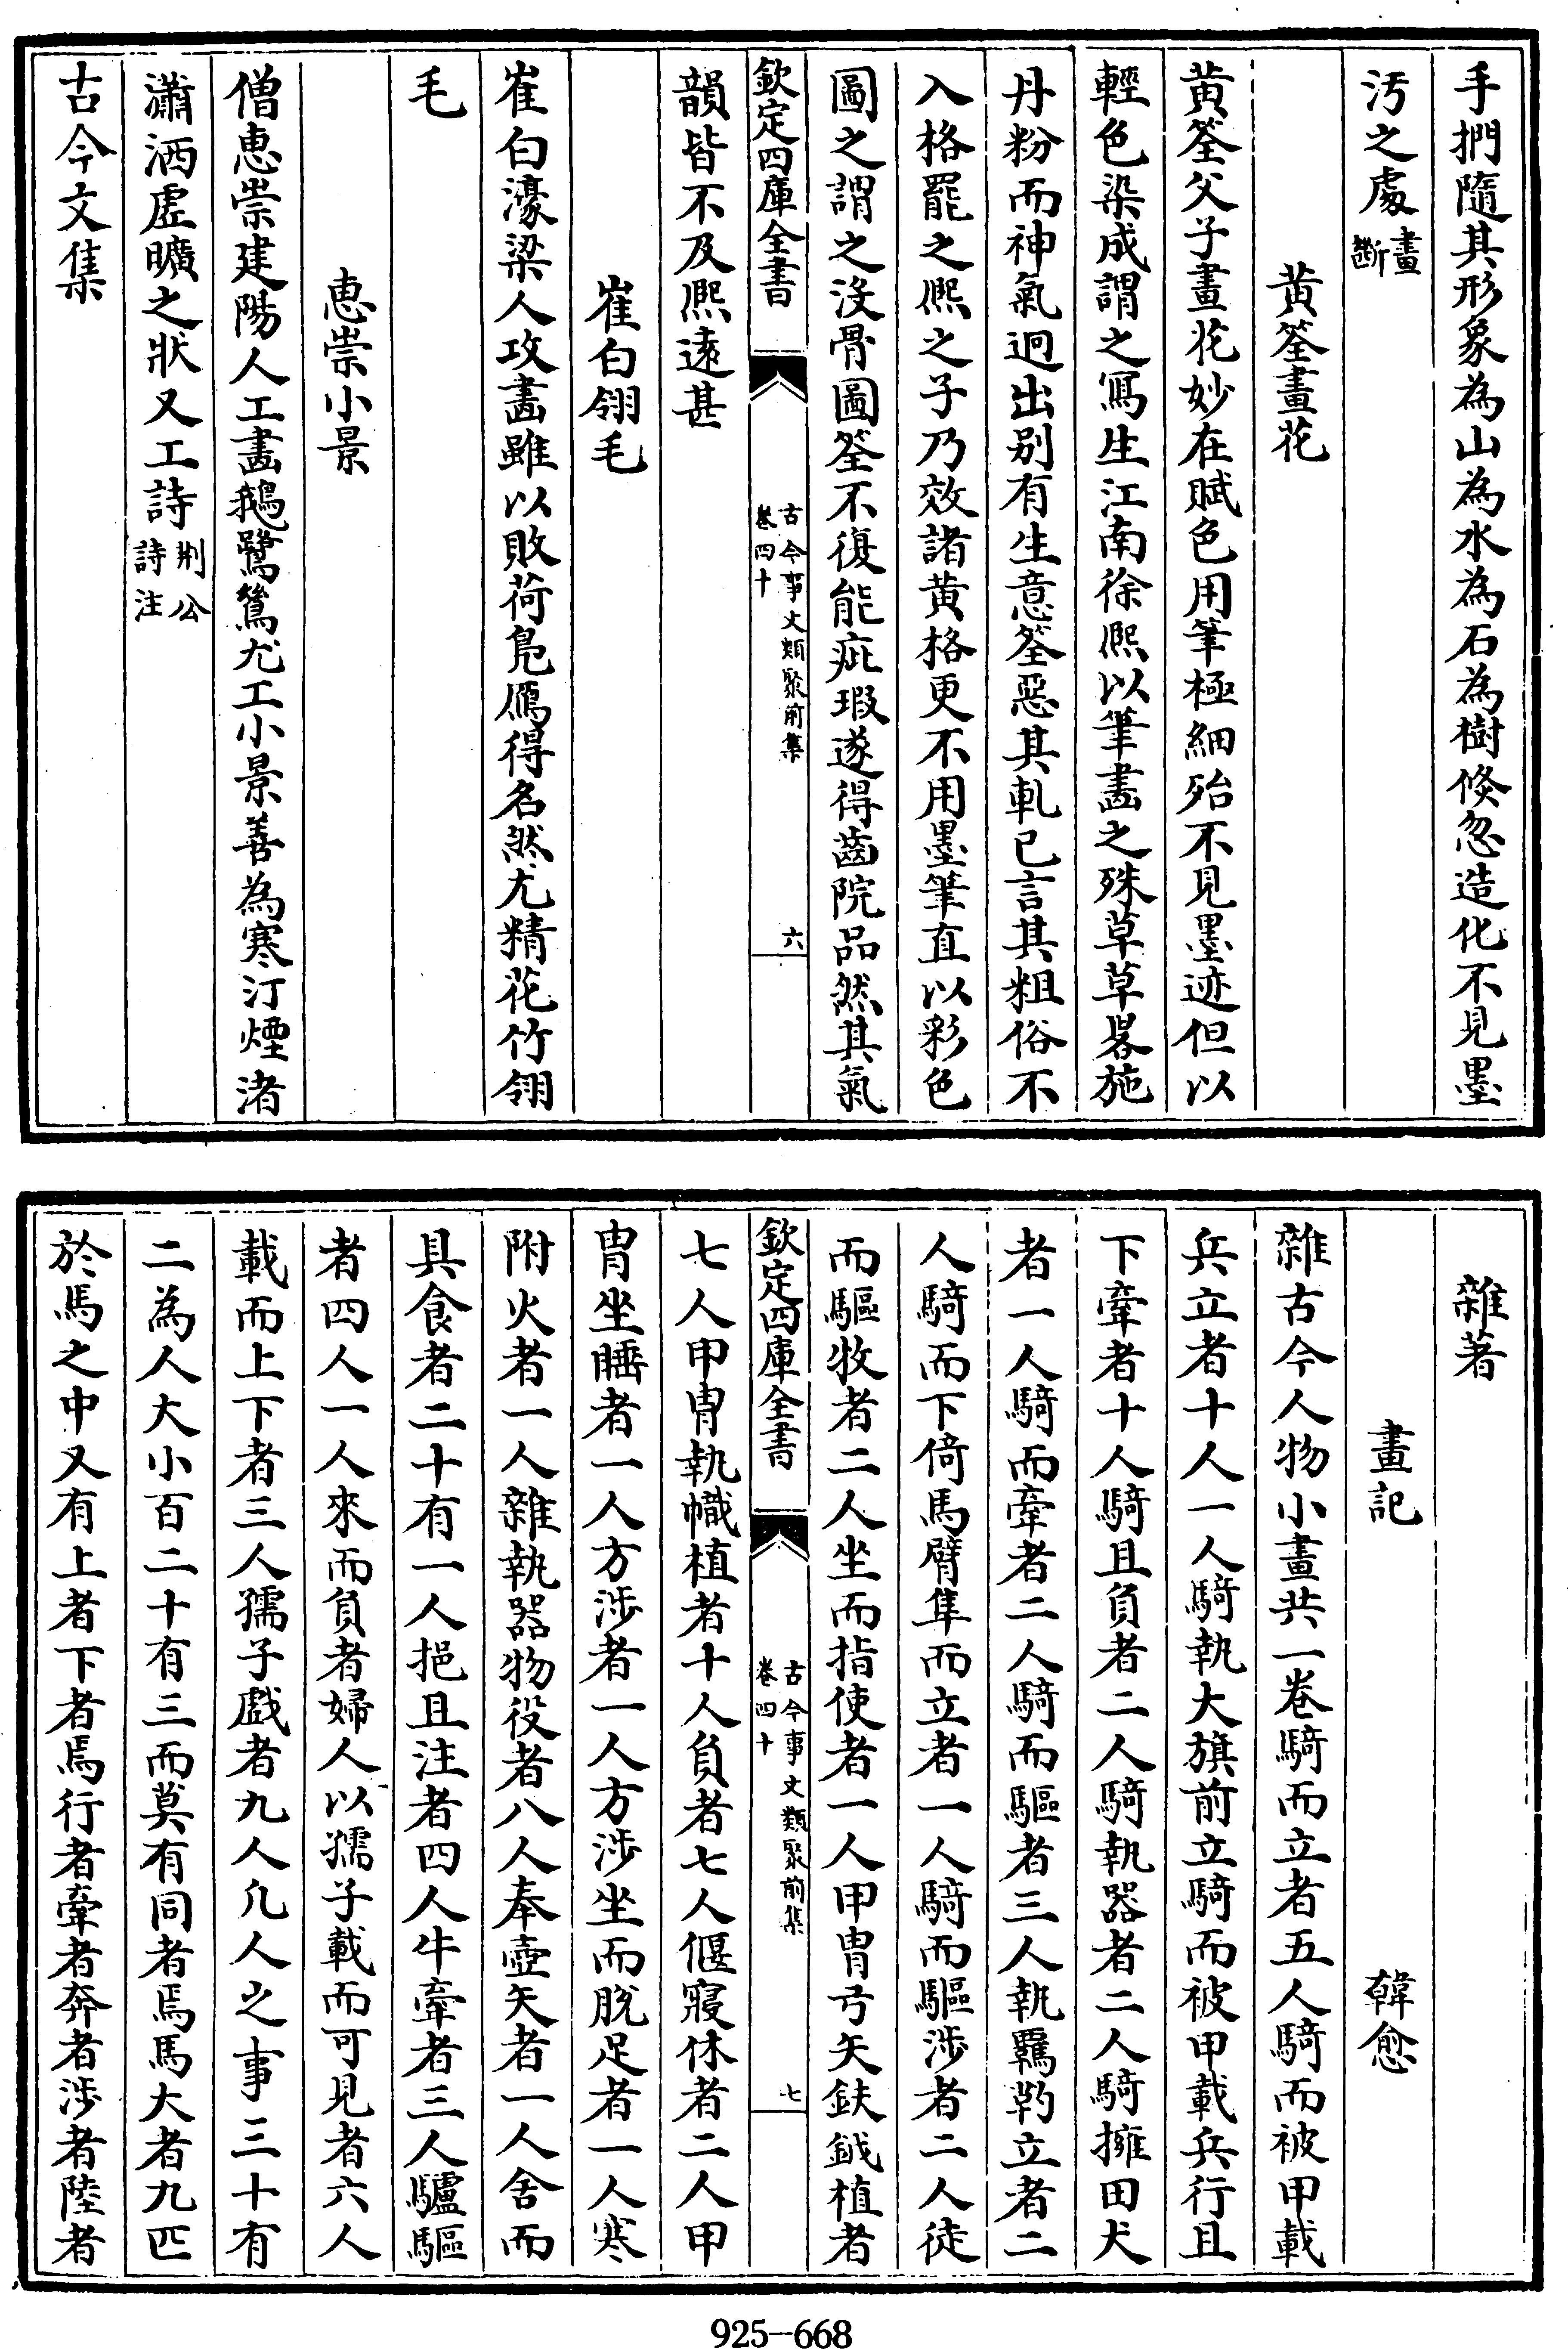 手捫隨其形象為山為水為石為樹倐忽造化不見墨
汚之處畫斷
黄筌畫花
黄筌父子畫花妙在賦色用筆極細殆不見墨迹但以
輕色染成謂之寫生江南徐熈以筆畫之殊草草畧施
丹粉而神氣迥出别有生意筌惡其軋已言其粗俗不
入格罷之熈之子乃效諸黄格更不用墨筆直以彩色
圖之謂之没骨圖筌不復能疵瑕遂得齒院品然其氣
欽定四庫全書
古今事文類聚前集
卷四十
六
韻皆不及熈遠甚
崔白翎毛
崔白濠梁人攻畫雖以敗荷鳬鴈得名然尤精花竹翎
毛
惠崇小景
僧惠崇建陽人工畫鵝鷺鴛尤工小景善為寒汀煙渚
瀟洒虚曠之狀又工詩荆公詩注
古今文集
雜著
畫記
韓愈
雜古今人物小畫共一卷騎而立者五人騎而被甲載
兵立者十人一人騎執大旗前立騎而被甲載兵行且
下牽者十人騎且負者二人騎執器者二人騎擁田犬
者一人騎而牽者二人騎而驅者三人執羈靮立者二
人騎而下倚馬臂隼而立者一人騎而驅涉者二人徒
而驅牧者二人坐而指使者一人甲胄弓矢鈇鉞植者
欽定四庫全書
古今事文類聚前集
卷四十
七
七人甲胄執幟植者十人負者七人偃寢休者二人甲
胄坐睡者一人方涉者一人方涉坐而脱足者一人寒
附火者一人雜執器物役者八人奉壺矢者一人舍而
具食者二十有一人挹且注者四人牛牽者三人驢驅
者四人一人來而負者婦人以孺子載而可見者六人
載而上下者三人孺子戲者九人凡人之事三十有
二為人大小百二十有三而莫有同者焉馬大者九匹
於馬之中又有上者下者焉行者牽者奔者涉者陸者
925-668